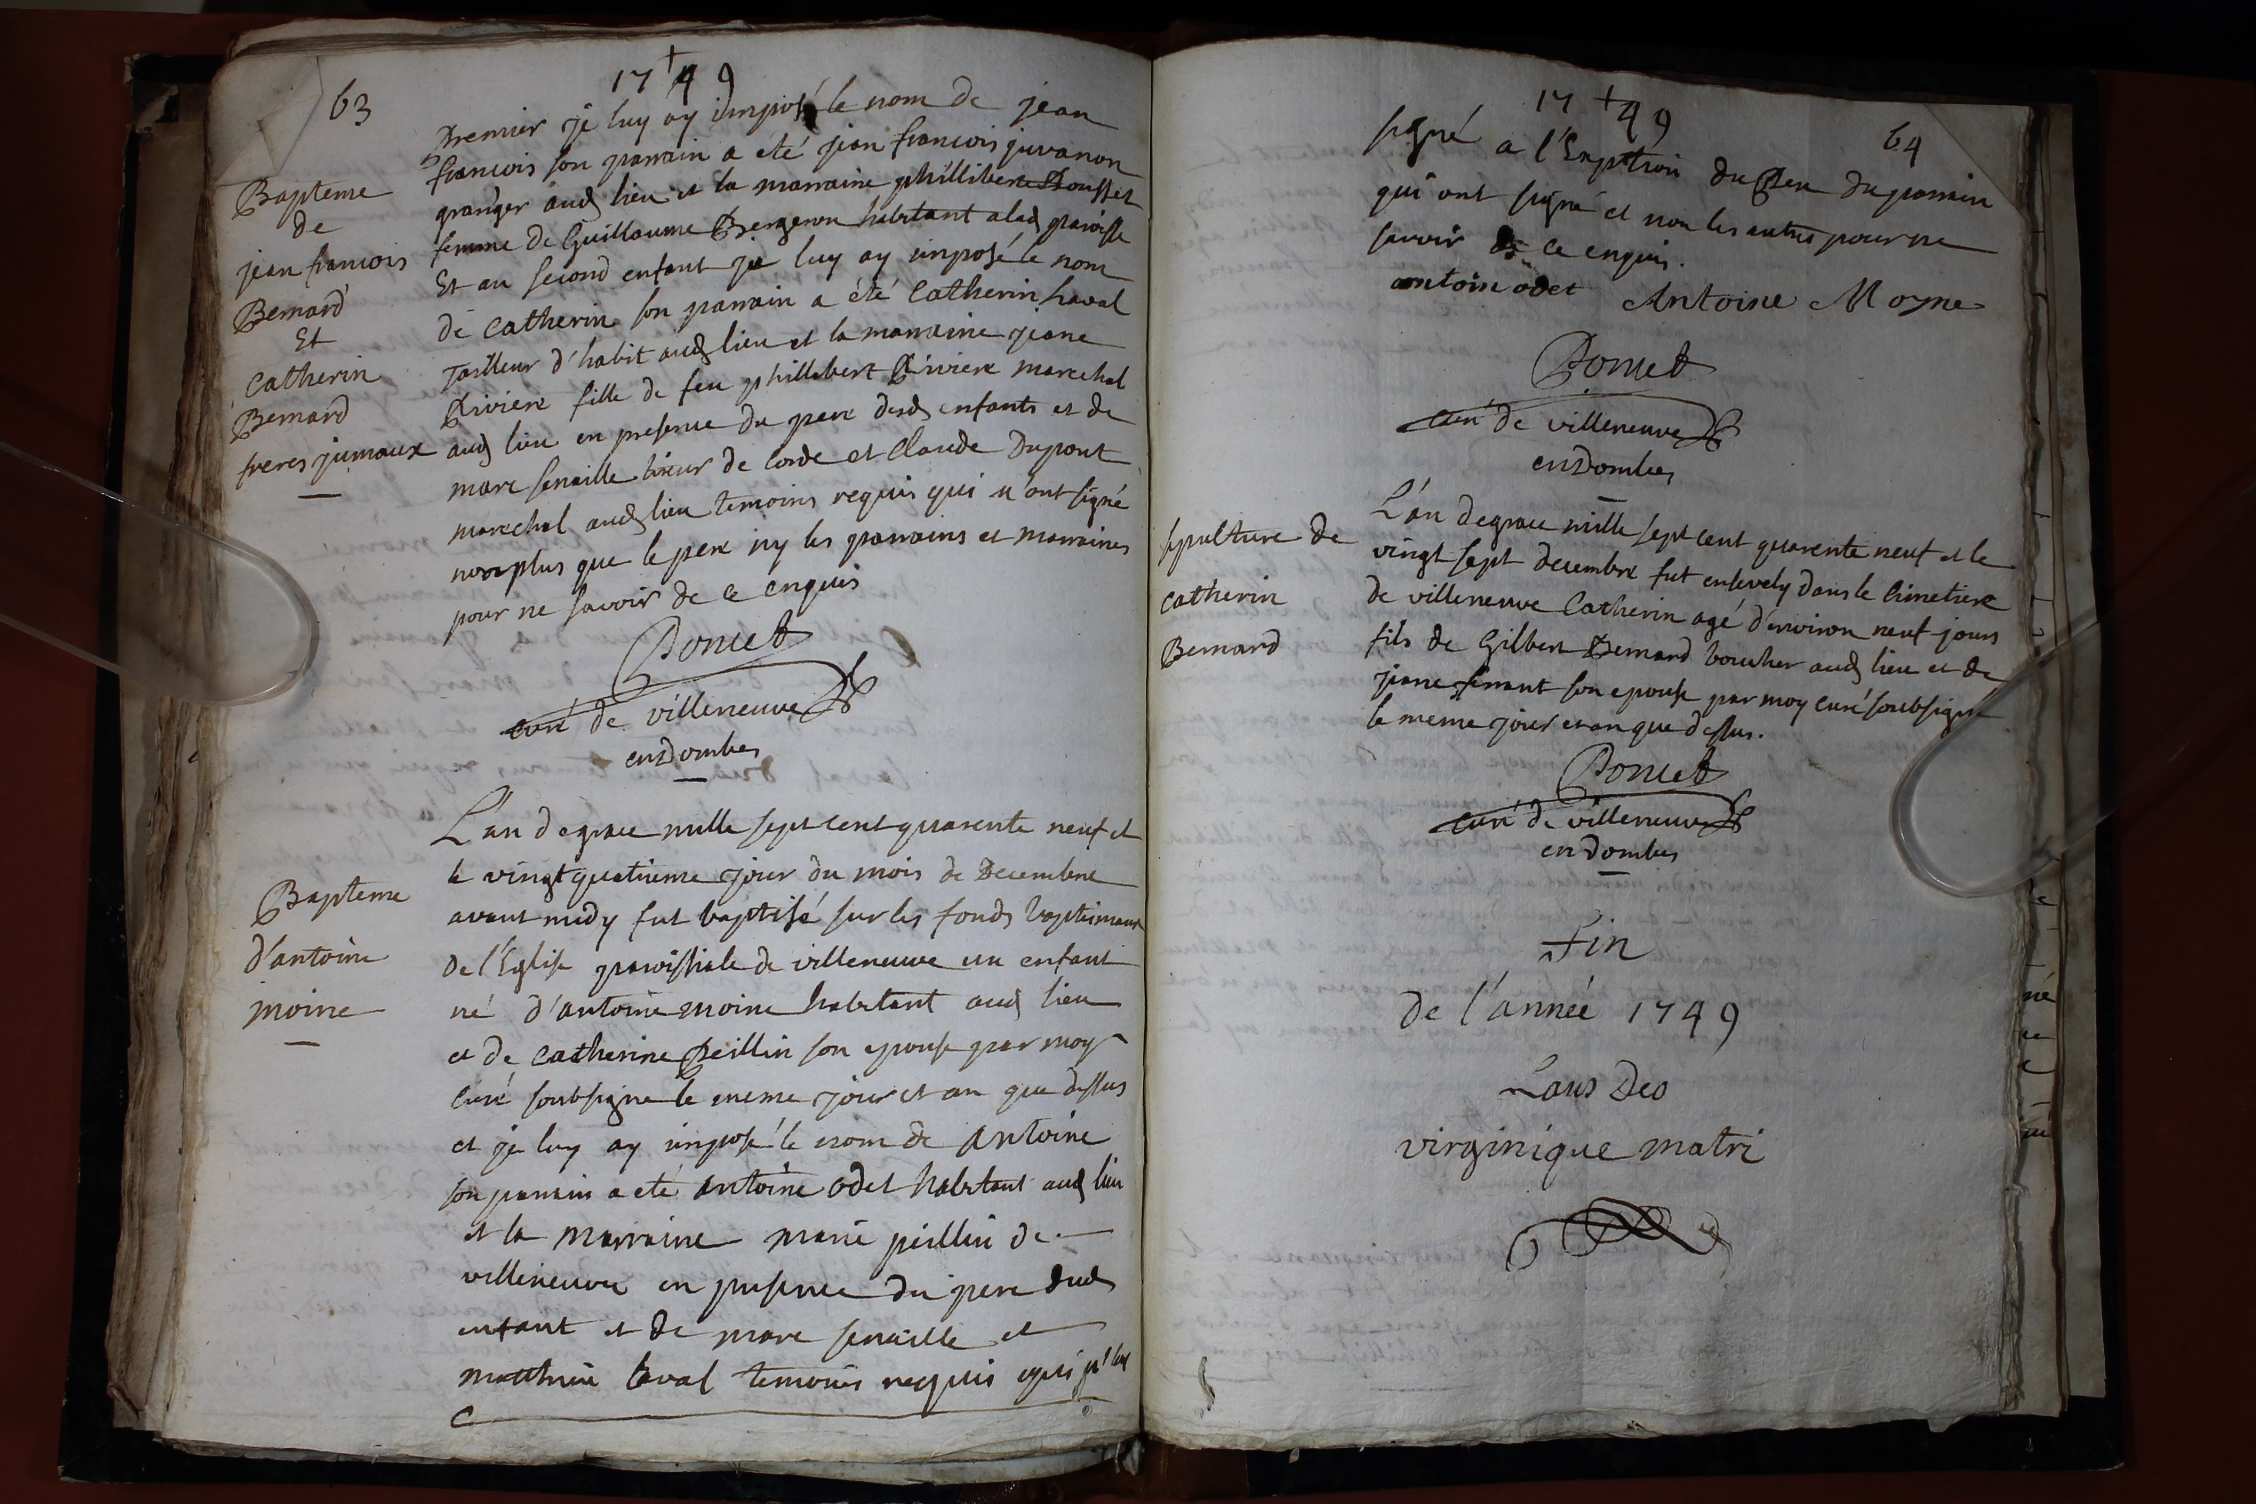 63
17+49
Bapteme
de
jean francois
Bernard
Et
Catherin
Bernard
freres jumaux
premier je luy ay imposé le nom de jean
francois son parrain a eté jean francois juvanon
granger aud lieu et la marraine philliberte Rousset
femme de Guillaume Bergeron habitant a lad paroisse
Et au second enfant je luy ay imposé le nom
de Catherin son parrain a été Catherin Laval
Tailleur d'habit aud lieu et la marraine jeane
Riviere fille de feu phillibert Riviere marechal
aud lieu en presence du pere desd enfants et de
marc senaille tireur de corde et Claude Dupont
marechal aud lieu temoins requis qui n'ont signé
non plus que le pere ny les parrains et marraines
pour ne savoir de ce enquis
Poncet
curé de villeneuve
en Dombes
Bapteme
d'antoine
moine
L'an de grace mille sept cent quarente neuf et
le vingt quatrieme jour du mois de Decembre
avant midy fut baptisé sur les fonds baptismaux
de l'Eglise paroissiale de villeneuve un enfant
né d'antoine moine habitant aud lieu
et de Catherine Peillin son epouse par moy
Curé soubsigne le meme jour et an que dessus
et je luy ay imposé le nom de Antoine
son parrain a eté antoine odet habitant aud lieu
et la marraine marie peillin de
villeneuve en presence du pere dud
enfant et de marc senaille et
matthieu Laval temoins requis qui n'ont
17+49
64
signé a l'Exption du pere du parrain
qui ont signé et non les autres pour ne
savoir de ce enquis.
antoine odet Antoine Moyne
Poncet
curé de villeneuve
en Dombes
sepulture de
Catherin
Bernard
L'an de grace mille sept cent quarente neuf et le
vingt sept decembre fut ensevely dans le Cimetiere
de villeneuve Catherin agé d'environ neuf jours
fils de Gilbert Bernard boucher aud lieu et de
jeane ferrant son epouse par moy curé soubsigne
le meme jour et an que dessus.
Poncet
curé de villeneuve
en Dombes
Fin
de l'année 1749
Laus Deo
virginique matri